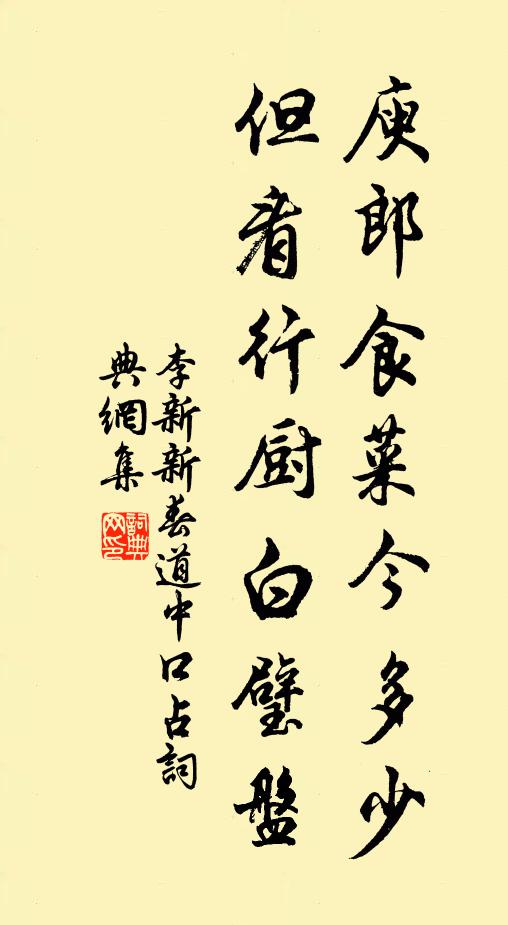 庾郎食菜今多少
但看行厨白璧盤
李新新春道中口占詞
典網集
詞典
网印